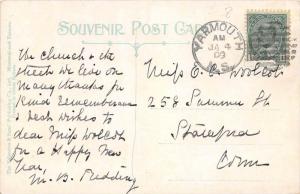 SOUVENIR POST CARD
YARMOUTH
AM
JA 4
09
N.S.
The Church & the
streets we live on
Many thanks for
kind remembrance
& best wishes to
dear Miss Wolcott
for a Happy New
Year,
M. B. Redding
Miss C Wolcott
258 Summer St
Stamford
Conn